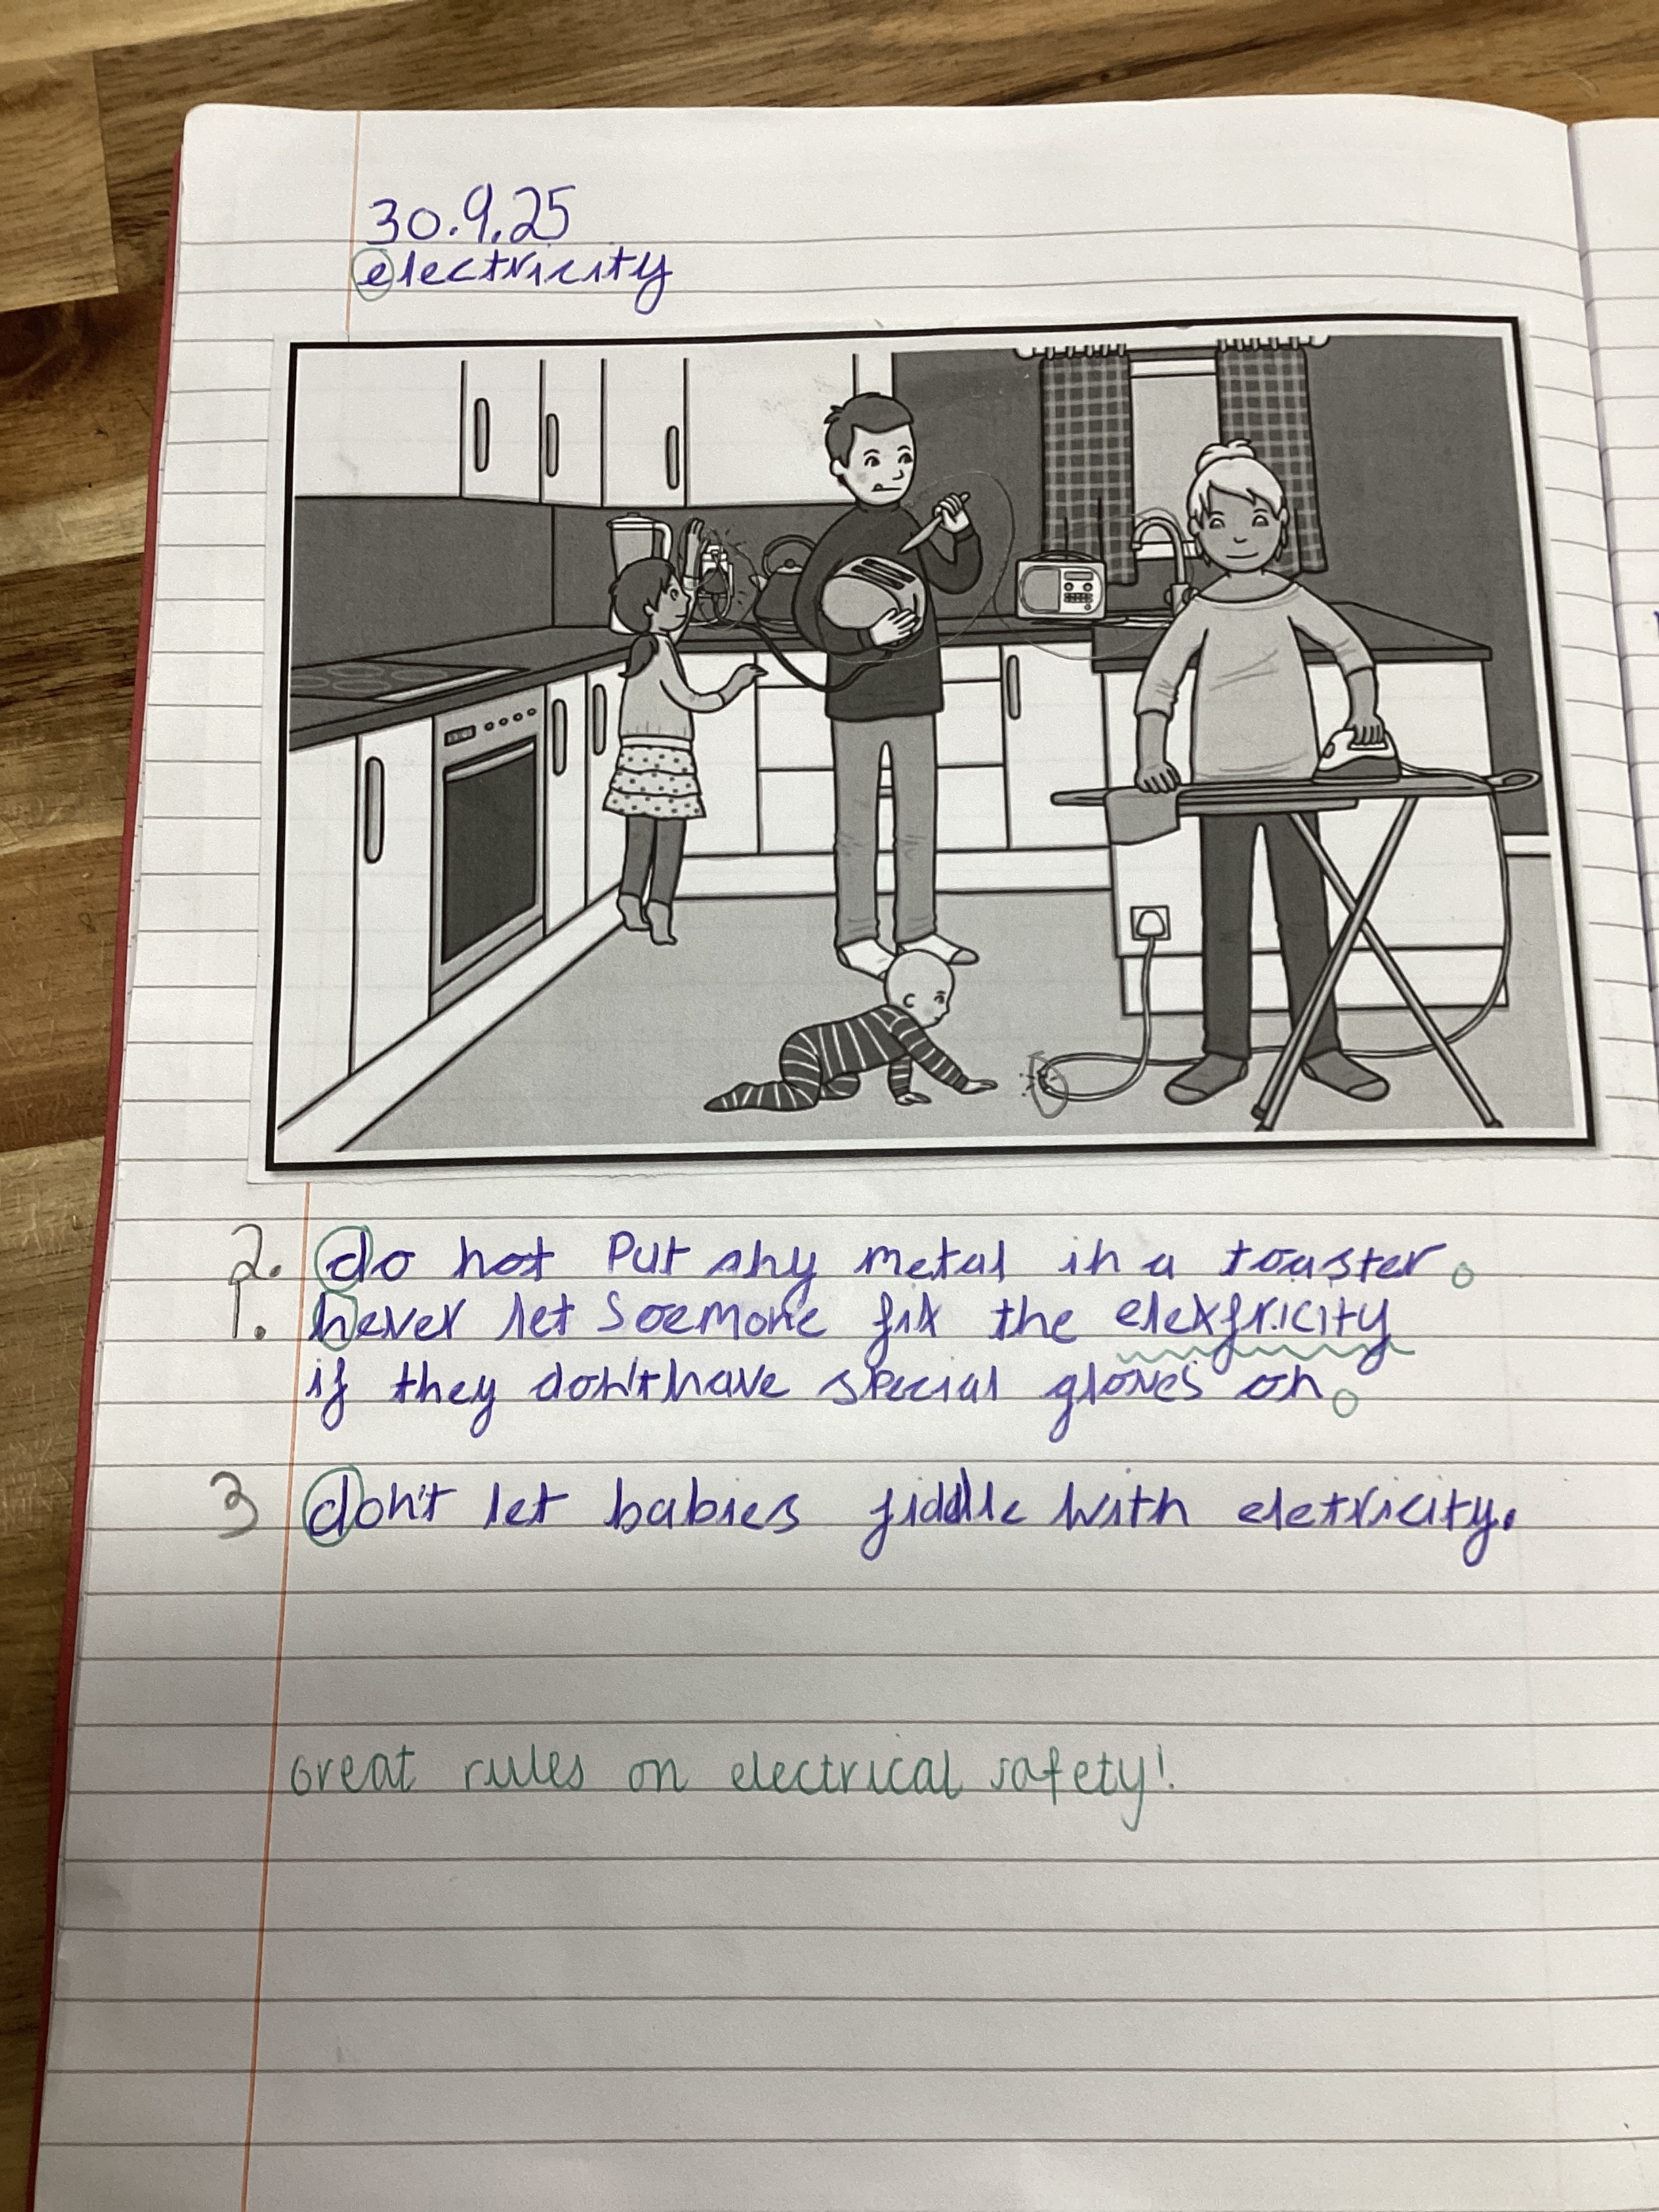 30.9.25
electricity
2. do not Put any metal in a toaster.
1. never let Soemone fix the elexfricity
if they don't have special gloves on.
3 don't let babies fiddle with eletricity.
Great rules on electrical safety!